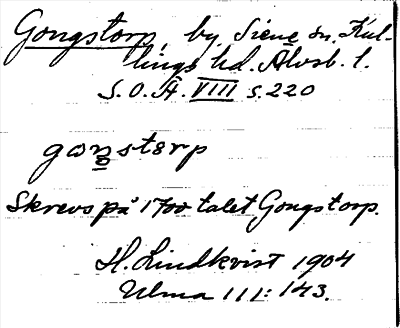 Gongstorp, by, Siene sn. Kul-
lings hd. Älvsb. l.
S.O.Ä. VIII s. 220
gɷn̲storp
Skrevs på 1700 talet Gongstorp.
H. Lindkvist 1904
Ulma 111: 143.